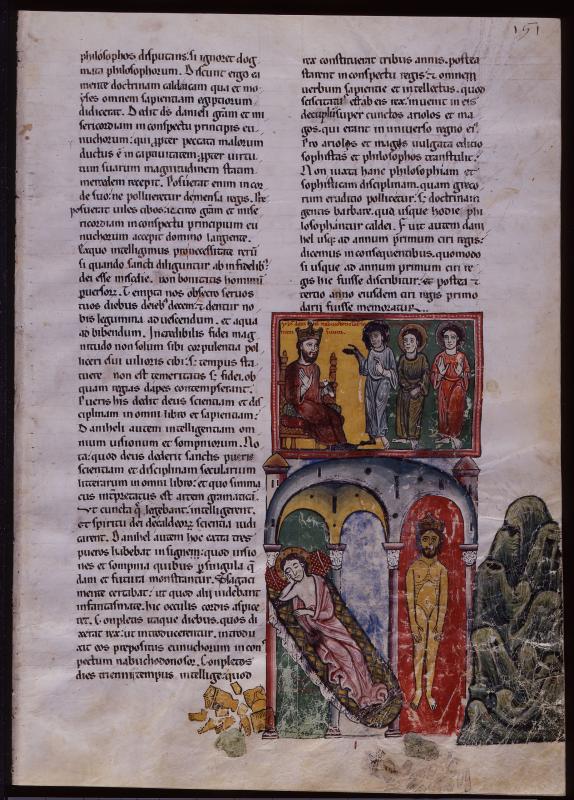 151
philosophos disputans. si ignoret dog
mata philosophorum. Discunt ergo ea
mente doctrinam caldaicam qua et mo
yses omnem sapientiam egiptiorum
didicerat. Dedit ds danieli gram et mi
sericordiam in conspectu principis eu
nuchorum: qui propter peccata maiorum
ductus e in captivitatem: propter virtu
tum suarum magnitudinem statim
mercedem recepit. Posuerat enim in cor
de suo: ne pollueretur de mensa regis.
posuerat viles cibos: gram et mise
ricordiam in conspectu principium eu
nuchorum accepit domino largiente.
Ex quo intelligimus pro necessitate reru
si quando sancti diliguntur ab infidelib'
dei esse misedie. non bonitatis hominu
puersor. Tempta nos obsecro servos
tuos diebus decem: et dentur no
bis legumina ad vescendum. et aqua
ad bibendum. Incredibilis fidei mag
nitudo non solum sibi corpulentia pol
liceri esui vilioris cibi: s; tempus sta
tuere non est temeritatis s; fidei. ob
quam regias dapes contempserant.
Pueris his dedit deus scientiam et dis
ciplinam in omni libro et sapientiam:
Danieli autem intelligentiam om
nium visionum et sompniorum. No
ta: quod deus dederit sanctis pueris
scientiam et disciplinam secularium
litterarum in omni libro: et quo simma
cus interpretatus est artem gramatica.
Ut cuncta q legebant. intelligerent.
et spiritu dei de caldeor scientia iudi
carent. Danihel autem hoc extra tres
pueros habebat insigne: quod visio
nes et sompnia quibus p singula q
dam et futura monstrantur. sagaci
mente cernebat: ut quod alij videbant
in fantasmate. hic occulis cordis aspice
ret. Conpletis itaque diebus. quos di
xerat rex: ut introducerentur. introdu
xit eos prepositus eunuchorum in con
spectum nabuchodonosor. Conpletos
dies triennij tempus intellige: quod
rex constituerat tribus annis. postea
starent in conspectu regis: et omnem
verbum sapientie et intellectus. quod
sciscitatus est ab eis rex. invenit in eis
decuplum super cunctos ariolos et ma
gos. qui erant in universo regno eius.
Pro ariolos et magos vulgata editio
sophistas et philosophos transtulit.
Non iuxta hanc philosophiam et
sophisticam disciplinam. quam greco
rum eruditio pollicetur: s; doctrinam
gentis barbare. qua usque hodie phi
losophantur caldei. Fuit autem dani
hel usq; ad annum primum ciri regis.
dicemus in consequentibus. quomodo
si usque ad annum primum ciri re
gis hic fuisse describitur. et postea
tertio anno eiusdem ciri regis primo
darij fuisse memoratur.